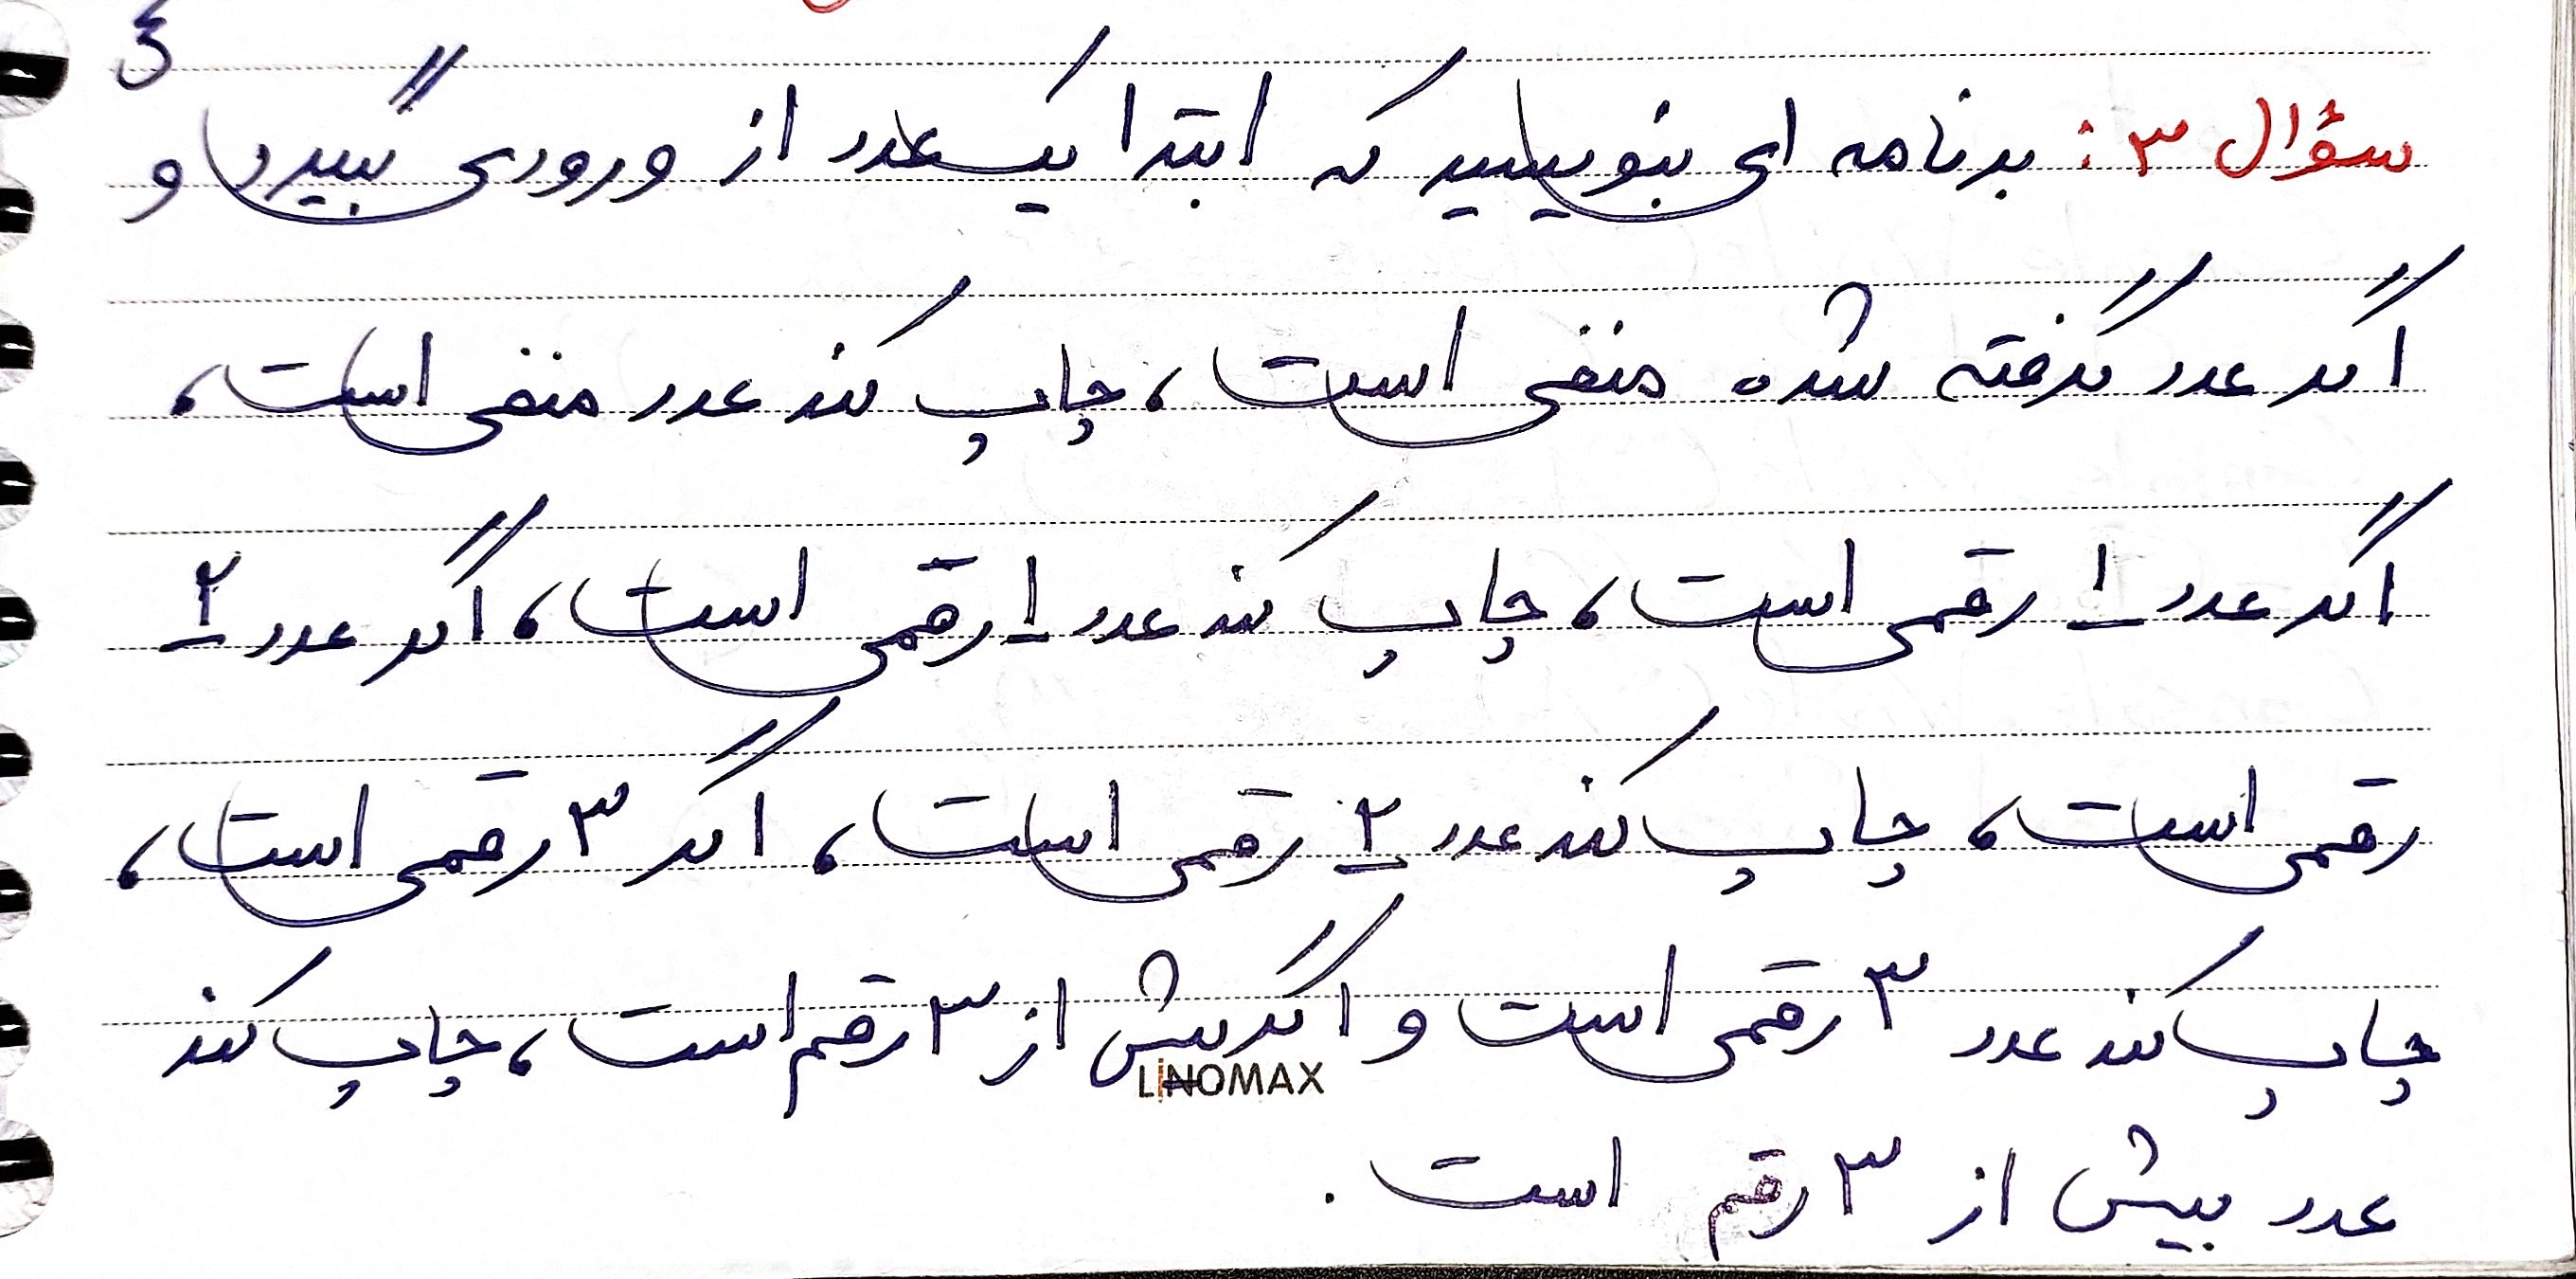 4
سؤال ۳: برنامه ای بنویسید که ابتدا یک عدد از ورودی بگیرد و
اگر عدد گرفته شده منفی است، چاپ کند عدد منفی است،
اگر عدد ۱ رقمی است، چاپ کند عدد ۱ رقمی است، اگر عدد ۲
رقمی است، چاپ کند عدد ۲ رقمی است، اگر ۳ رقمی است،
چاپ کند عدد ۳ رقمی است و اگر بیش از ۳ رقم است، چاپ کند
LINOMAX
عدد بیش از ۳ رقم است.